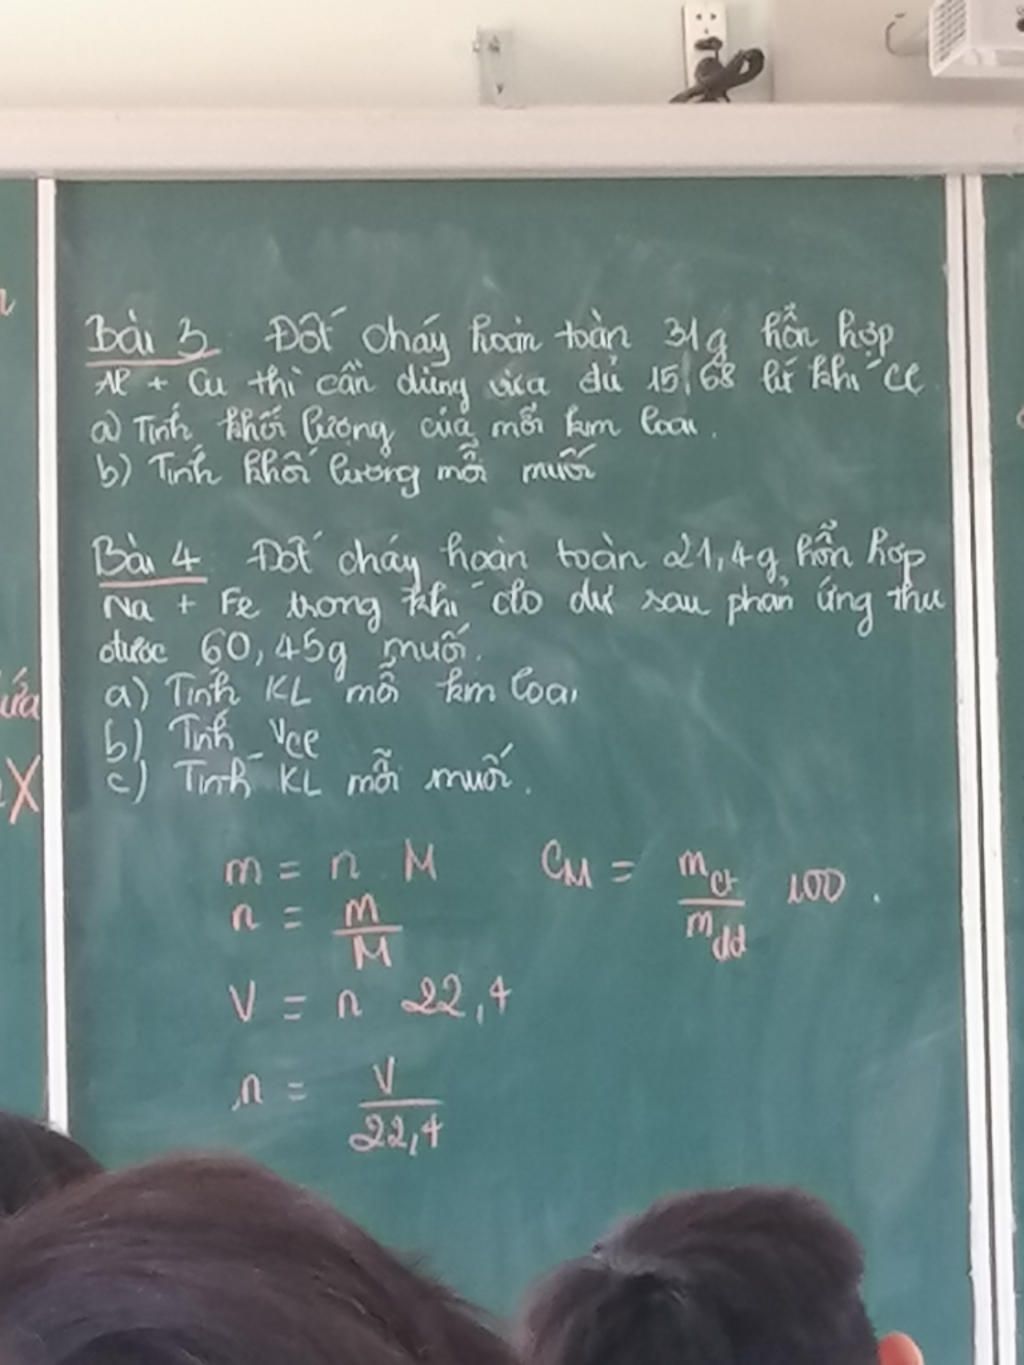 Bài 3 Đốt cháy hoàn toàn 31g hỗn hợp
Al + Cu thì cần dùng vừa đủ 15,68 lít khí Cl
a) Tính khối lượng của mỗi kim loại.
b) Tính khối lượng mỗi muối
Bài 4 Đốt cháy hoàn toàn 21,4g hỗn hợp
Na + Fe trong khí clo dư sau phản ứng thu
được 60,45g muối.
a) Tính KL mỗi kim loại
b) Tính VCl
c) Tính KL mỗi muối.
m = n M
n = m/M
V = n 22,4
n = V/22,4
CM = mct/mdd 100.
ứa
X